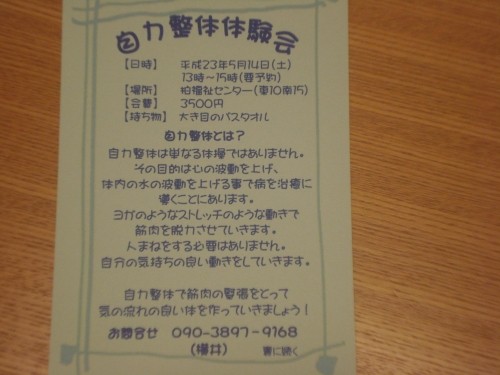 自力整体体験会
【日時】 平成23年5月14日(土)
13時～15時(要予約)
【場所】 柏福祉センター(東10南15)
【会費】 3500円
【持ち物】 大き目のバスタオル
自力整体とは？
自力整体は単なる体操ではありません。
その目的は心の波動を上げ、
体内の水の波動を上げる事で病を治癒に
導くことにあります。
ヨガのようなストレッチのような動きで
筋肉を脱力させていきます。
人まねをする必要はありません。
自分の気持ちの良い動きをしていきます。
自力整体で筋肉の緊張をとって
気の流れの良い体を作っていきましょう！
お問合せ 090-3897-9168
(櫻井) 裏に続く